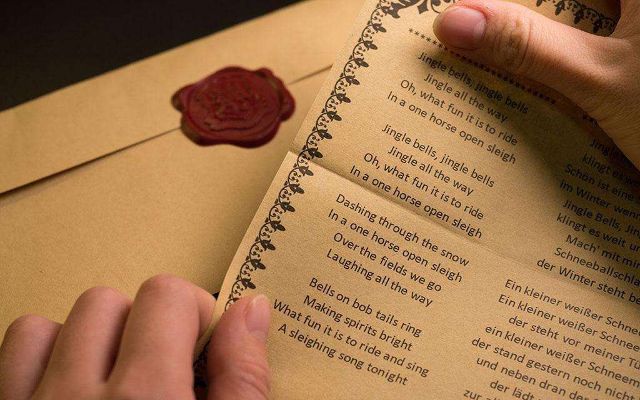 Jingle bells, jingle bells
Jingle all the way
Oh, what fun it is to ride
In a one horse open sleigh
Jingle bells, jingle bells
Jingle all the way
Oh, what fun it is to ride
In a one horse open sleigh
Dashing through the snow
In a one horse open sleigh
Over the fields we go
Laughing all the way
Bells on bob tails ring
Making spirits bright
What fun it is to ride and sing
A sleighing song tonight
klingt es
Schön ist eine
im Winter wenn
Jingle Bells, Jin
klingt es weit u
Mach' mit mir
Schneeballschla
der Winter steht be
Ein kleiner weißer Schnee
Ein kleiner weißer Schnee
der steht vor meiner Tü
ein kleiner weißer Schneem
der stand gestern noch nicht
und neben dran der
der lädt